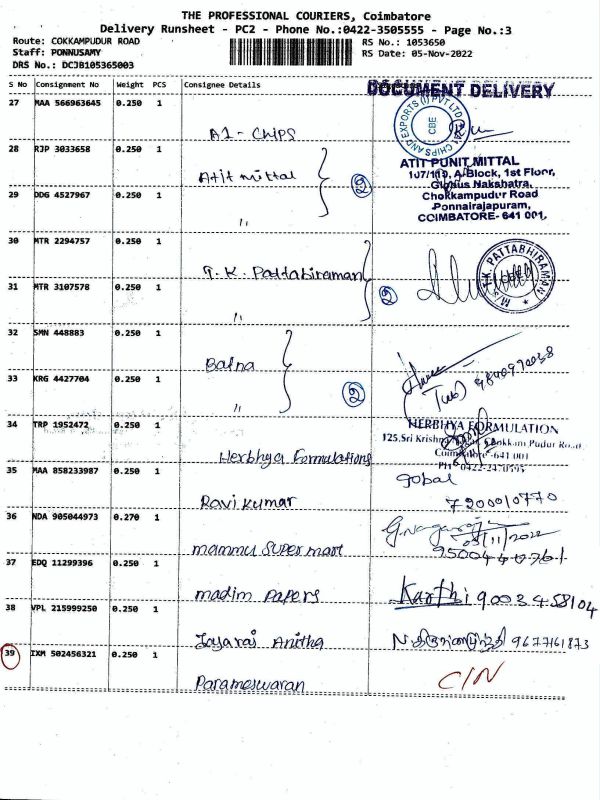 THE PROFESSIONAL COURIERS, Coimbatore
Delivery Runsheet - PC2 - Phone No.:0422-3505555 - Page No.:3
Route: COKKAMPUDUR ROAD
RS No.: 1053650
Staff: PONNUSAMY
RS Date: 05-Nov-2022
DRS No.: DCJB105365003
S No Consignment No Weight PCS Consignee Details
DOCUMENT DELIVERY
27 MAA 566963645 0.250 1
A1 - Chips
A1 CHIPS AND EXPORTS (I) PVT LTD
CBE
28 RJP 3033658 0.250 1
Atit mittal
②
ATIT PUNIT MITTAL
107/119, A-Block, 1st Floor,
Globus Nakshatra,
Chokkampudur Road
Ponnairajapuram,
COIMBATORE- 641 001.
29 DDG 4527967 0.250 1
"
30 MTR 2294757 0.250 1
T. K. Pattabiraman
②
M/s. T.K. PATTABHIRAMAN
31 MTR 3107578 0.250 1
"
32 SMN 448883 0.250 1
Balna
②
33 KRG 4427704 0.250 1
"
34 TRP 1952472 0.250 1
Herbhya Formulations
HERBHYA FORMULATION
125,Sri Krishna Chokkam Pudur Road
Coimbatore-641 001
35 MAA 858233987 0.250 1
Ravi kumar
gobal
7200010770
36 NDA 905044973 0.270 1
mammu Super mart
G.Nagaraj
05/11/2022
37 EDQ 11299396 0.250 1
madim Papers
Karthi 9003458104
38 VPL 215999250 0.250 1
Jayaraj Anitha
9677161873
39 IXM 502456321 0.250 1
Parameswaran
C/N